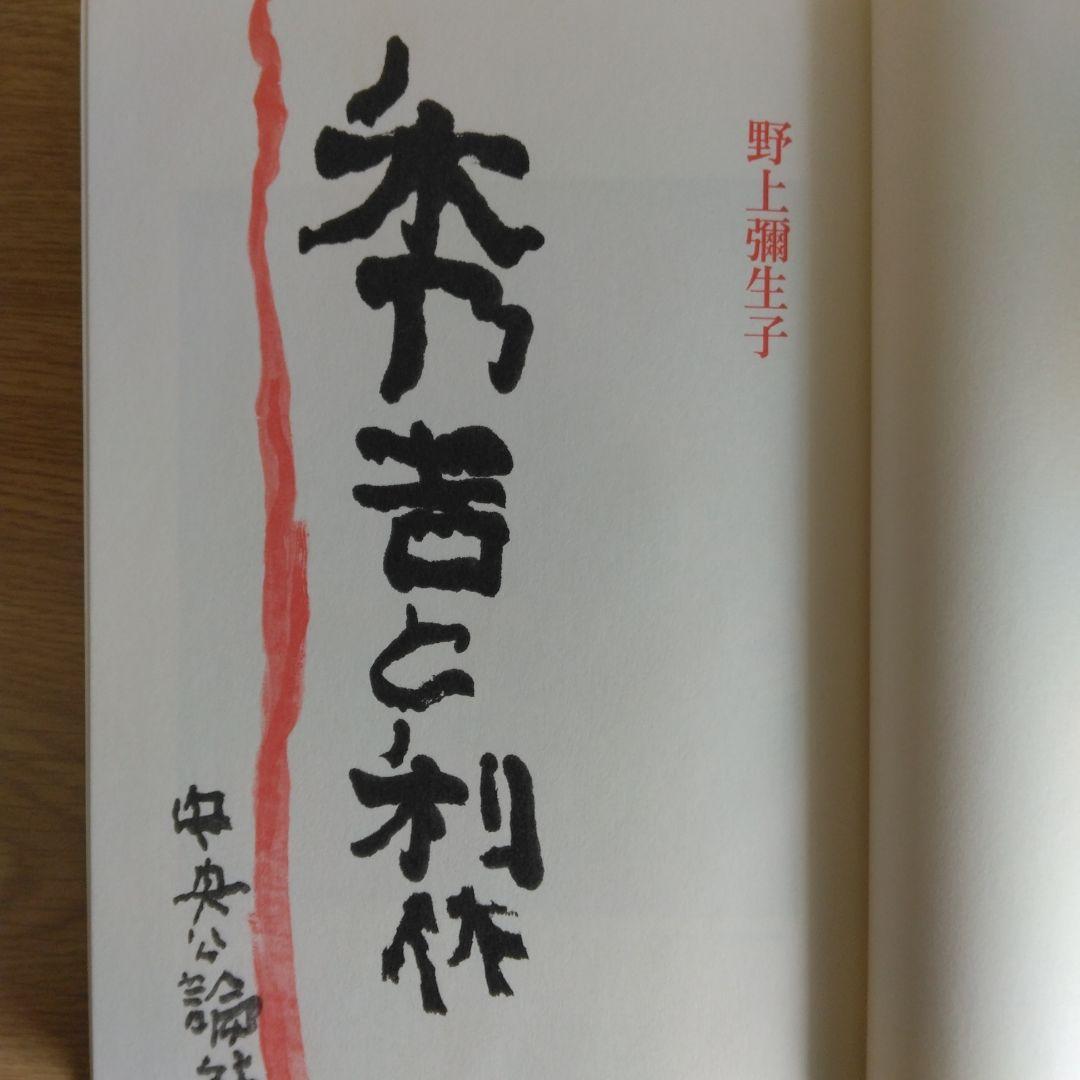 野上彌生子
秀吉と利休
中央公論社